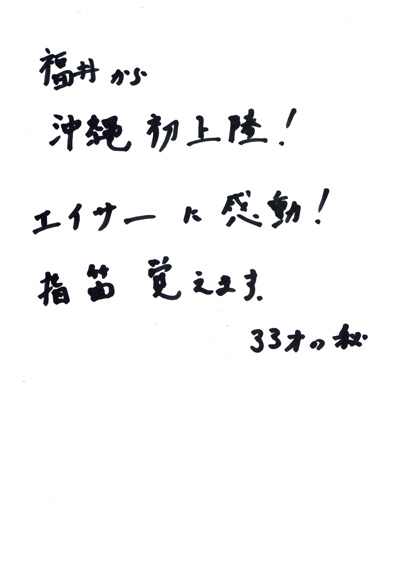 福井から
沖縄初上陸!
エイサーに感動!
指笛覚えます.
33才の秘